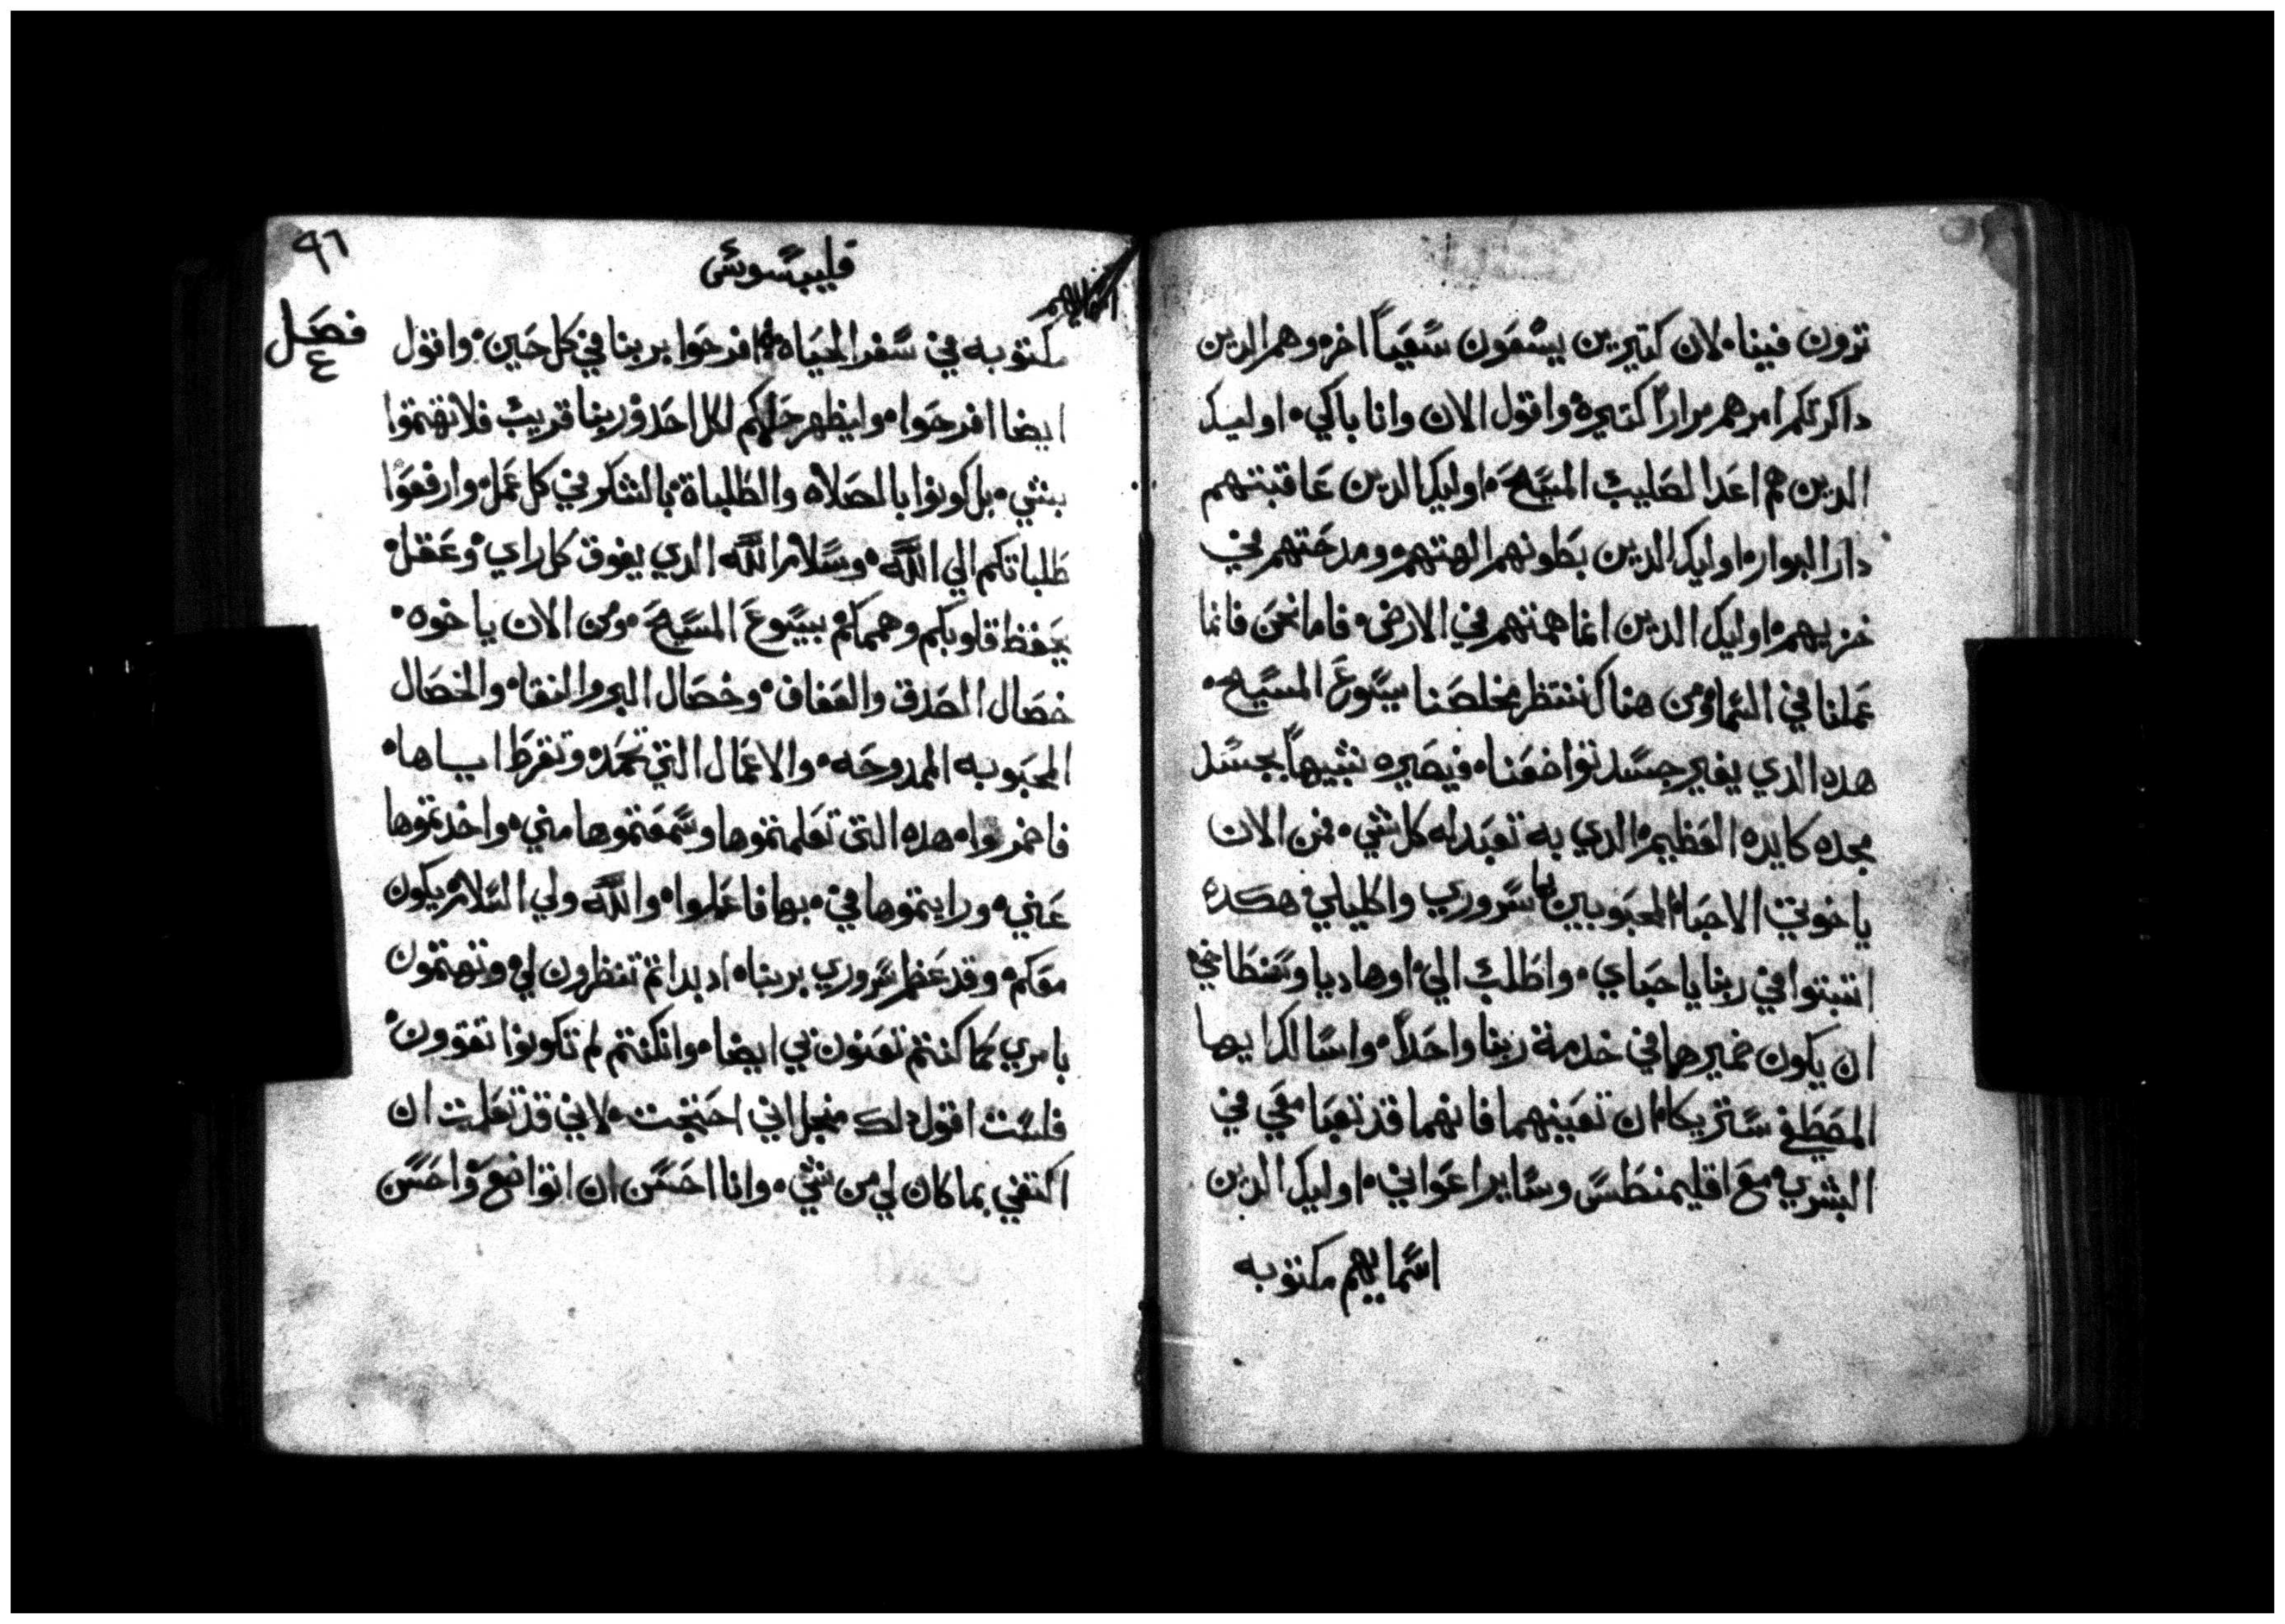 ترون فينا. لان كتيرين يسعون سعياً اخر. وهم الدين
داكرتكم امرهم مراراً كتيره. واقول الان وانا باكي. اوليك
الدين هم اعدا لصليب المسيح. اوليك الدين عاقبتهم
دار البوار. اوليك الدين بطونهم الهتهم. ومدحتهم في
خزيهم. اوليك الدين انما همتهم في الارض. فاما نحن فانما
عملنا في السما ومن هناك ننتظر مخلصنا يسوع المسيح.
هدا الدي يغير جسد تواضعنا. فيصيره شبيهاً بجسد
مجده كايده العظيم. الدي به تعبد له كل شي. فمن الان
ياخوتي الاحبا. المحبوبين يا سروري واكليلي هكدى
اتبتوا في ربنا ياحباي. واطلب الي اوهاديا وسنطاخي
ان يكون ضميرهما في خدمة ربنا واحداً. واسالك ايها
المصطفي ستريكا. ان تعينهما فانهما قد تعبا معي في
البشري. مع اقليمنطس وساير اعواني. اوليك الدين
اسمايهم مكتوبه
٩٦
فليبسوس
اسمايهم
فصل
٤
مكتوبه في سفر الحياه. افرحوا بربنا في كل حين. واقول
ايضا افرحوا. وليظهر حلمكم لكل احد. وربنا قريب فلا تهتموا
بشي. بل كونوا بالصلاه والطلباة. بالشكر في كل عمل. وارفعوا
طلباتكم الي الله. وسلام الله الدي يفوق كل راي. وعقل.
يحفظ قلوبكم وهممكم بيسوع المسيح. ومن الان ياخوه.
خصال الصدق والعفاف. وخصال البر والنقا. والخصال
المحبوبه الممدوحه. والاعمال التي تحمد. وتقرط اياها.
فاضمروا. هده التي تعلمتموها وسمعتموها مني. واخدتموها
عني. ورايتموها في. بها فاعملوا. والله ولي السلام يكون
معكم. وقد عظم سروري بربنا. اد بداتم تنظرون لي. وتهتمون
بامري كما كنتم تعنون بي ايضا. وان كنتم لم تكونوا تقوون.
فلست اقول لك منجل اني احتجت. لاني قد تعلمت ان
اكتفي بما كان لي من شي. وانا احسن ان اتواضع. واحسن